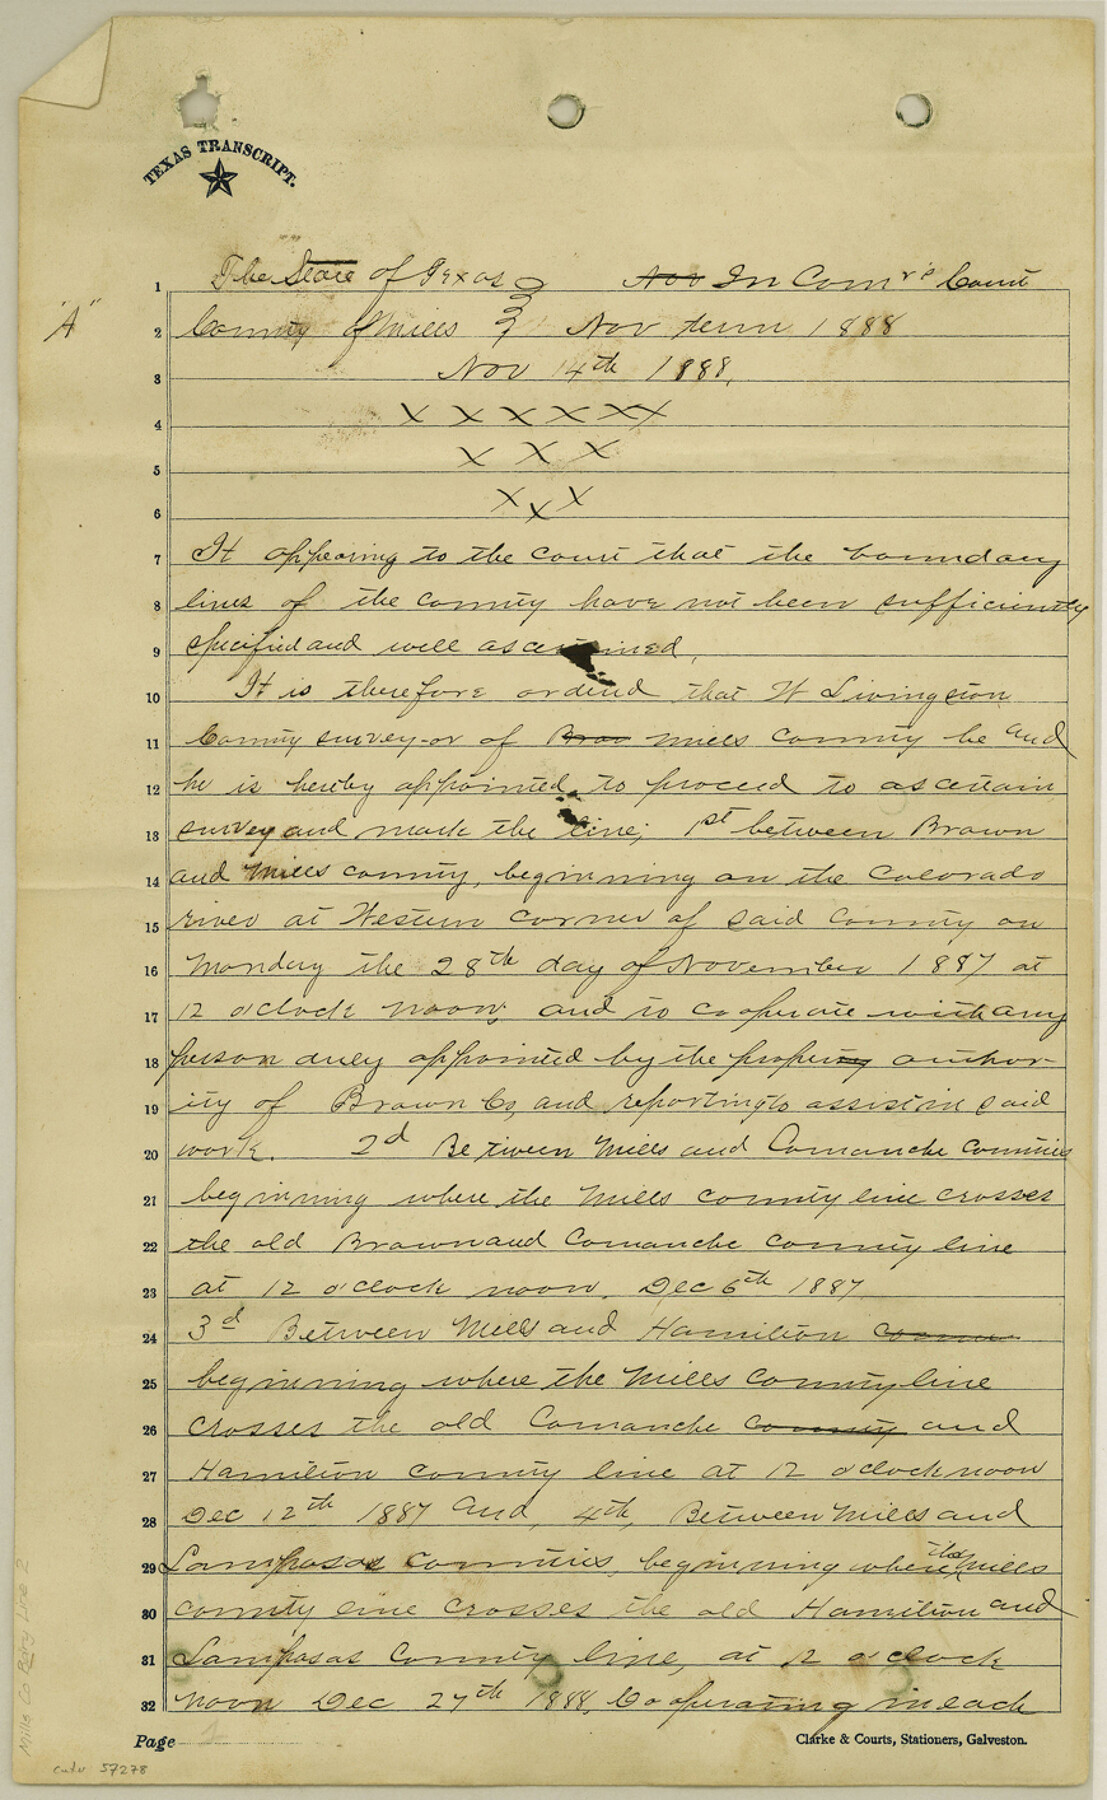 TEXAS TRANSCRIPT.
"A"
1 The State of Texas } Nov In Com'rs Court
2 County of Mills } Nov term 1888
3 Nov 14th 1888.
4 X X X X X X
5 X X X
6 X X X
7 It appearing to the court that the boundary
8 lines of the county have not been sufficiently
9 specified and well ascertained,
10 It is therefore ordered that W Livingston
11 County survey-or of Brow Mills County be and
12 he is hereby appointed to proceed to ascertain
13 survey and mark the line; 1st between Brown
14 and Mills county, beginning on the Colorado
15 river at Western corner of said County on
16 Monday the 28th day of November 1887 at
17 12 o'clock noon, and to cooperate with any
18 person duly appointed by the propering author-
19 ity of Brown Co, and reporting to assist in said
20 work. 2d Between Mills and Comanche Counties
21 beginning where the Mills county line crosses
22 the old Brown and Comanche county line
23 at 12 o'clock noon. Dec 6th 1887
24 3d Between Mills and Hamilton
25 beginning where the Mills County line
26 crosses the old Comanche County and
27 Hamilton county line at 12 o'clock noon
28 Dec 12th 1887 and, 4th, Between Mills and
29 Lampasas Counties, beginning where the Mills
30 county line crosses the old Hamilton and
31 Lampasas County line, at 12 o'clock
32 noon Dec 27th 1888, Cooperating in each
Page 1
Clarke & Courts, Stationers, Galveston.
Mills Co Bdry Line 2
cntr 57278